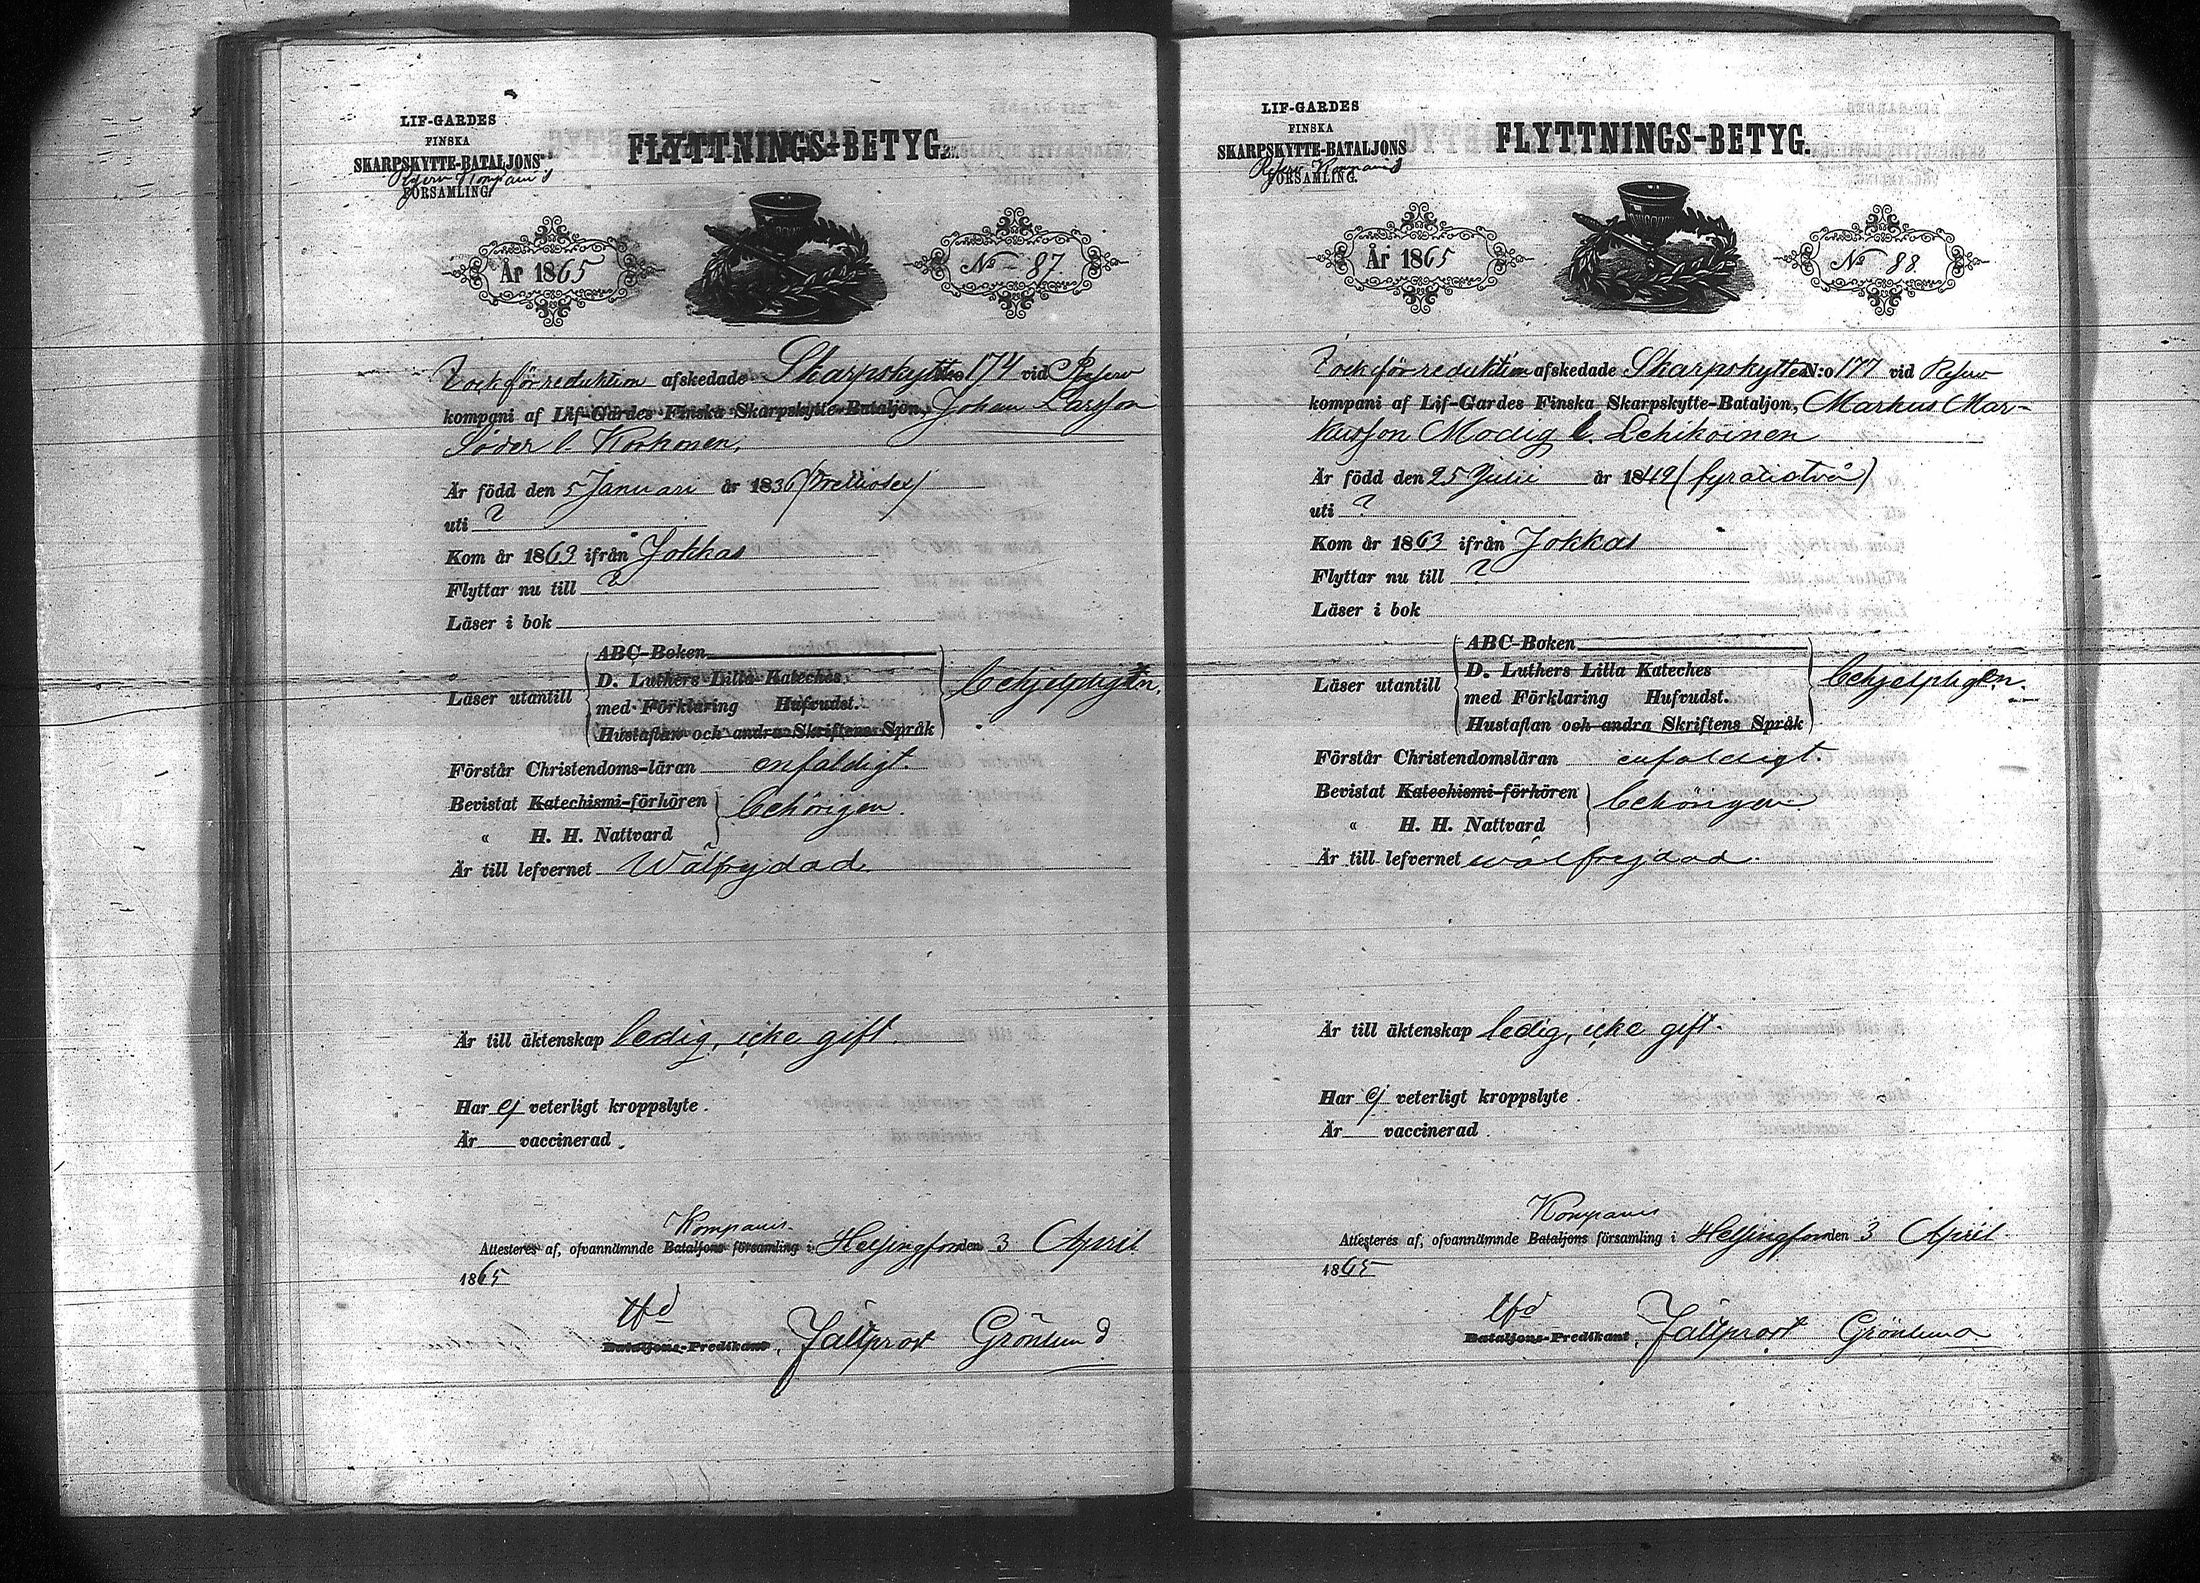 LIF-GARDES
FINSKA
SKARPSKYTTE-BATALJONS
Reserv Kompanis
FÖRSAMLING.
FLYTTNINGS-BETYG.
År 1865
No 87.
för reduktion afskedade Skarpskytten No 174 vid Reserv
kompani af Lif-Gardes Finska Skarpskytte-Bataljon, Johan Larsson
Söder l. Korhonen,
Är född den 5 Januari år 1836 (Trettiosex)
uti ?
Kom år 1863 ifrån Jokkas
Flyttar nu till ?
Läser i bok
ABC-Boken
Läser utantill D. Luthers Lilla Kateches behjelpligen.
med Förklaring Hufvudst.
Hustaflan och andra Skriftens Språk
Förstår Christendoms-läran enfaldigt.
Bevistat Katechismi-förhören behörigen.
" H. H. Nattvard
Är till lefvernet Wälfrejdad.
Är till äktenskap ledig, icke gift.
Har ej veterligt kroppslyte.
Är vaccinerad.
Kompanis
Attesteres af, ofvannämnde Bataljons församling i Helsingfors den 3 April
1865
Tfd
Bataljons-Predikant, Fältprost Grönlund
LIF-GARDES
FINSKA
SKARPSKYTTE-BATALJONS
Reserv Kompanis
FÖRSAMLING.
FLYTTNINGS-BETYG.
År 1865
No 88.
för reduktion afskedade Skarpskytten N:o 177 vid Reserv
kompani af Lif-Gardes Finska Skarpskytte-Bataljon, Markus Mar-
kusson Modig l. Lehikoinen
Är född den 25 Julii år 1842 (fyratiotvå)
uti ?
Kom år 1863 ifrån Jokkas
Flyttar nu till ?
Läser i bok
ABC-Boken
Läser utantill D. Luthers Lilla Kateches behjelpligen.
med Förklaring Hufvudst.
Hustaflan och andra Skriftens Språk
Förstår Christendomsläran enfaldigt.
Bevistat Katechismi-förhören behörigen
" H. H. Nattvard
Är till lefvernet wälfrejdad.
Är till äktenskap ledig, icke gift.
Har ej veterligt kroppslyte.
Är vaccinerad.
Kompanis
Attesteres af, ofvannämnde Bataljons församling i Helsingfors den 3 April
1865
Tfd
Bataljons-Predikant, Fältprost Grönlund